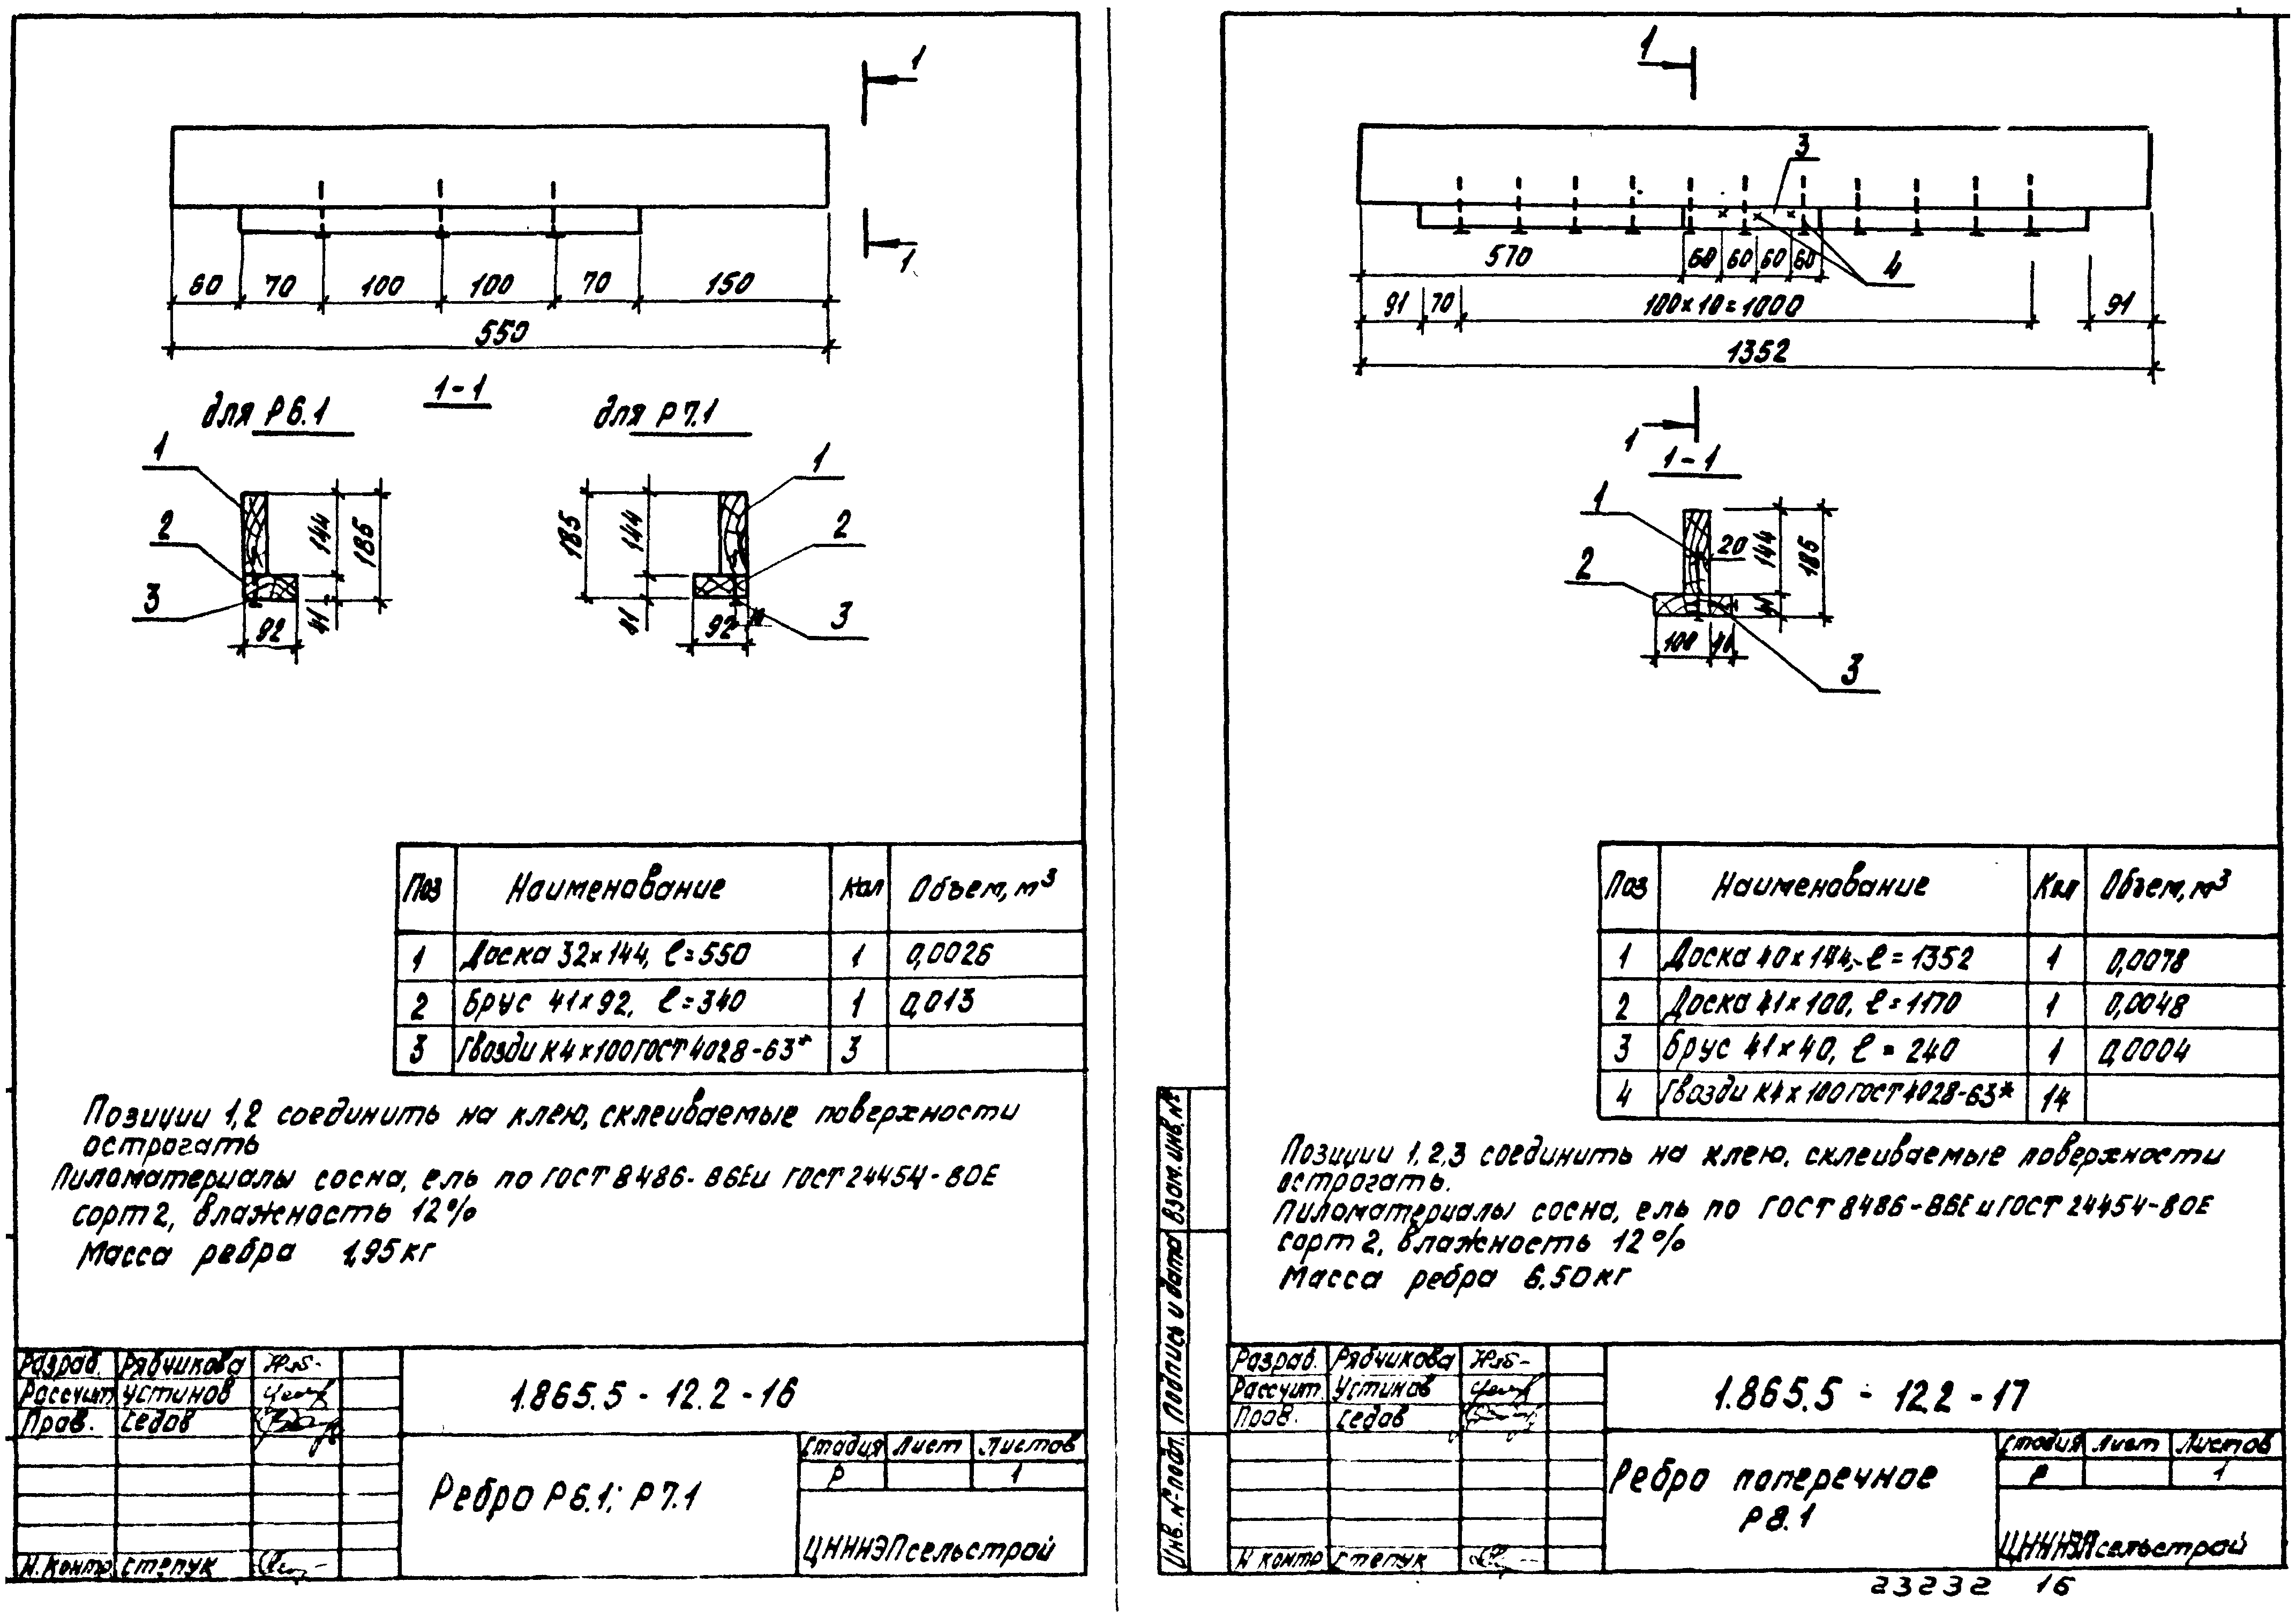 1
1
60 70 100 100 70 150
550
1-1
для Р6.1
для Р7.1
1
2
3
144
185
41
92
185
144
41
92
1
2
3
Поз Наименование Кол Объем, м³
1 Доска 32×144, ℓ=550 1 0,0026
2 Брус 41×92, ℓ=340 1 0,013
3 Гвозди К4×100 ГОСТ 4028-63* 3
Позиции 1,2 соединить на клею, склеиваемые поверхности
острогать
Пиломатериалы сосна, ель по ГОСТ 8486-86Е и ГОСТ 24454-80Е
сорт 2, влажность 12%
Масса ребра 1,95 кг
Разраб. Рябчикова
Рассчит. Устинов
Пров. Седов
Н. контр. Степук
1.865.5 - 12.2 - 16
Ребро Р6.1; Р7.1
Стадия Лист Листов
Р 1
ЦНИИЭПсельстрой
1
3
4
570 60 60 60 60
91 70 100×10=1000 91
1352
1
1-1
1
2
3
20
144
185
41
100 40
Поз Наименование Кол Объем, м³
1 Доска 40×144, ℓ=1352 1 0,0078
2 Доска 41×100, ℓ=1170 1 0,0048
3 Брус 41×40, ℓ=240 1 0,0004
4 Гвозди К4×100 ГОСТ 4028-63* 14
Позиции 1,2,3 соединить на клею, склеиваемые поверхности
острогать.
Пиломатериалы сосна, ель по ГОСТ 8486-86Е и ГОСТ 24454-80Е
сорт 2, влажность 12%
Масса ребра 6.50 кг
Взам. инв. №
Подпись и дата
Инв. № подл.
Разраб. Рябчикова
Рассчит. Устинов
Пров. Седов
Н контр Степук
1.865.5 - 12.2 - 17
Ребро поперечное
Р8.1
Стадия Лист Листов
Р 1
ЦНИИЭПсельстрой
23232 16